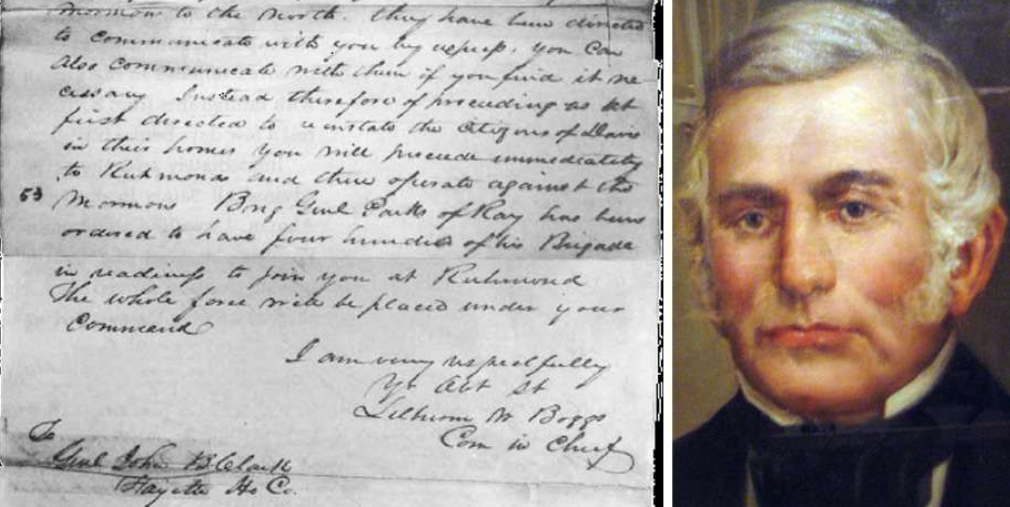 Mormons to the north. They have been directed
to communicate with you by express. you can
also communicate with them if you find it ne
cessary Instead therefore of proceeding as at
first directed to reinstate the Citizens of Davis
in their homes you will proceed immediately
to Richmond and there operate against the
53 Mormons Brig Genl Parks of Ray has been
ordered to have four hundred of his Brigade
in readiness to join you at Richmond
The whole force will be placed under your
Command
I am very respectfully
Yr obt St
Lilburn W Boggs
Com in Chief
To
Genl John B Clark
Fayette Ho Co.